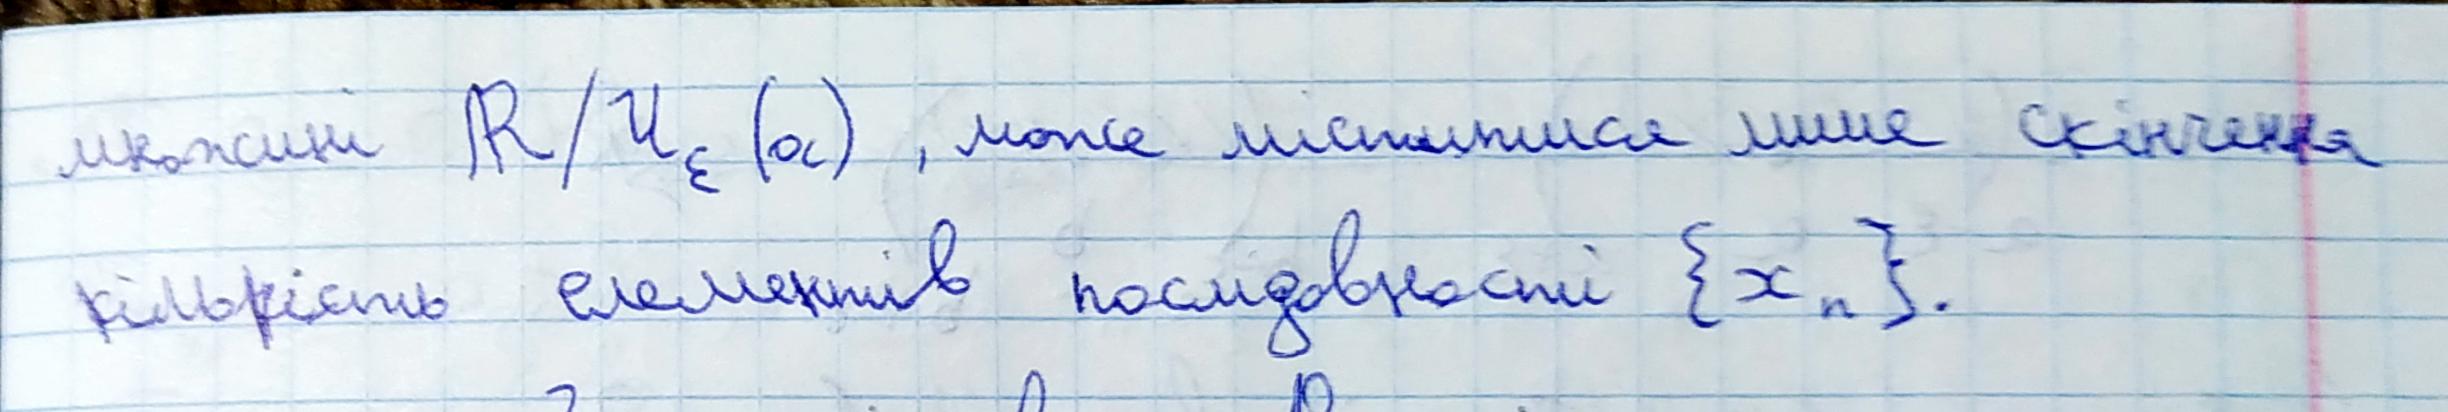 множині ℝ/U_ε(a), може міститися лише скінченна
кількість елементів послідовності {x_n}.